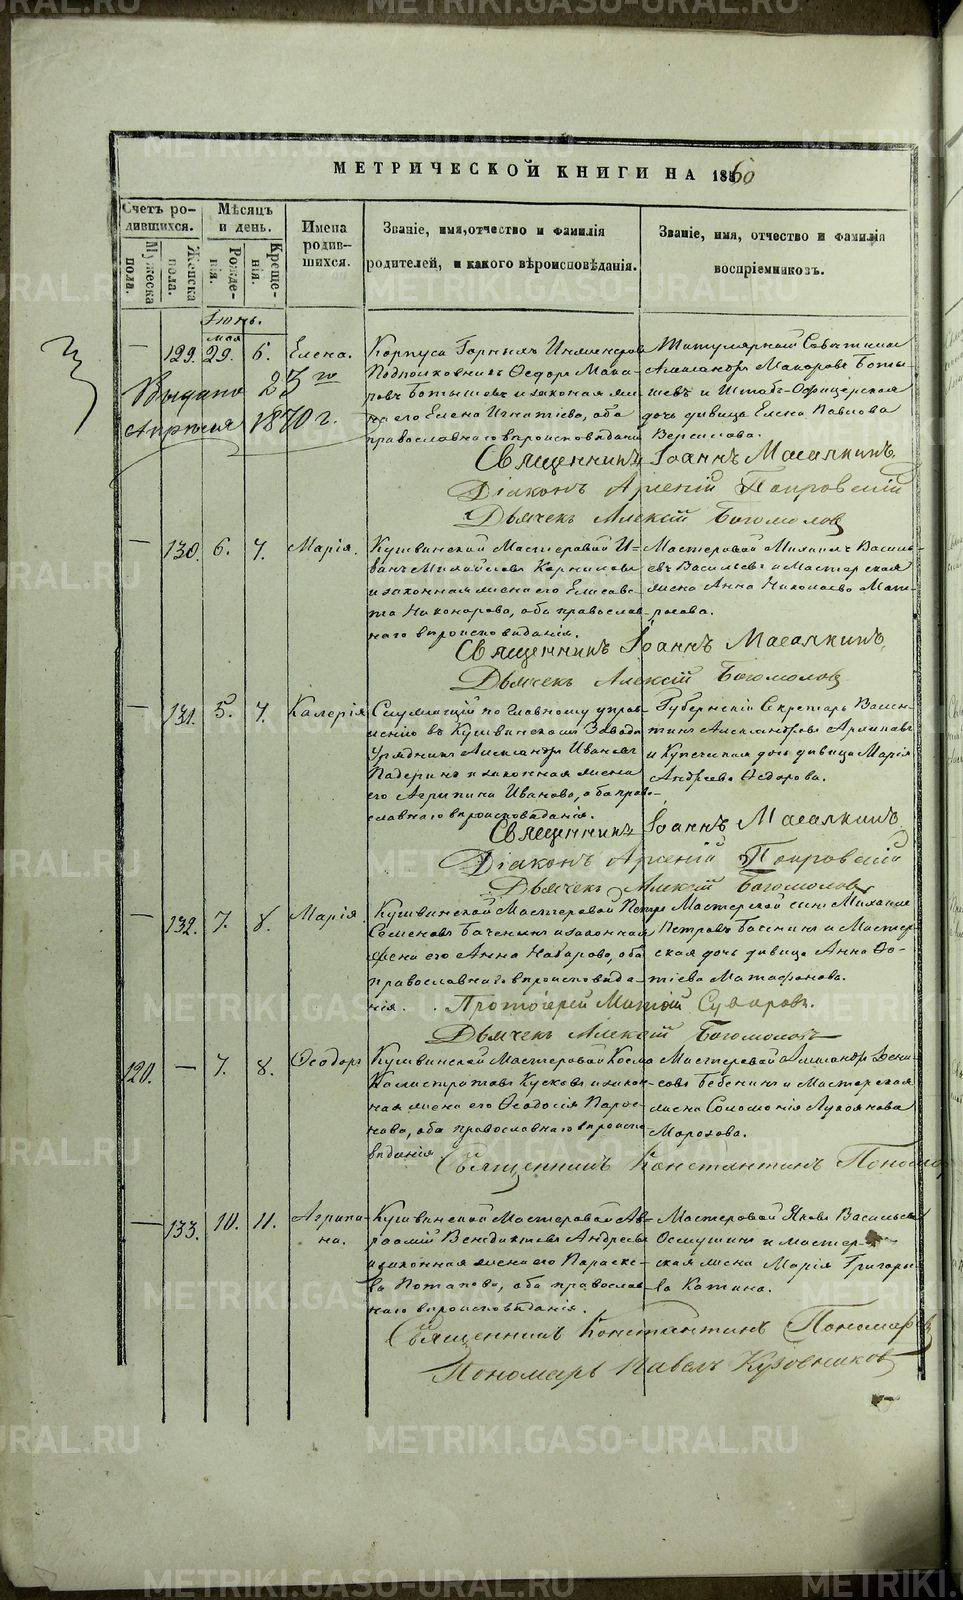 МЕТРИЧЕСКОЙ КНИГИ НА 1860
Счетъ родившихся.
Мужеска пола.
Женска пола.
Мѣсяцъ и день.
Рожденія.
Крещенія.
Имена родившихся.
Званіе, имя, отчество и фамилія родителей, и какого вѣроисповѣданія.
Званіе, имя, отчество и фамилія воспріемниковъ.
Іюнь.
мая
— 129. 29. 6. Елена.
Корпуса Горныхъ Инженеровъ
Подполковникъ Ѳедоръ Мака-
ровъ Ботышевъ и законная же-
на его Елена Игнатіева, оба
православнаго вѣроисповѣданія
Титулярный Совѣтникъ
Александръ Макаровъ Боты-
шевъ и Штабъ-Офицерская
дочь дѣвица Елена Павлова
Выдано 23го
Апрѣля 1870 г.
Священникъ Іоаннъ Масалкинъ
Діаконъ Арсеній Покровскій
Дьячекъ Алексій Богомоловъ
— 130. 6. 7. Марія.
Кушвинскій Мастеровой И-
ванъ Михайловъ Корниловъ
и законная жена его Елисаве-
та Никонорова, оба православ-
наго вѣроисповѣданія.
Мастеровой Михаилъ Василь-
евъ Васильевъ и Мастерская
жена Анна Николаева
Священникъ Іоаннъ Масалкинъ
Дьячекъ Алексій Богомоловъ
— 131. 5. 7. Калерія
Служащій по Главному управ-
ленію въ Кушвинскомъ Заводѣ
Урядникъ Александръ Ивановъ
Падеринъ и законная жена
его Агрипина Иванова, оба право-
славнаго вѣроисповѣданія.
Губернскій Секретарь Вален-
тинъ Александровъ
и Купеческая дочь дѣвица Марія
Андреева Ѳедорова.
Священникъ Іоаннъ Масалкинъ
Діаконъ Арсеній Покровскій
Дьячекъ Алексій Богомоловъ
— 132. 7. 8. Марія
Кушвинской Мастеровой Петръ
Семеновъ и законная
жена его Анна Назарова, оба
православнаго вѣроисповѣда-
нія.
Мастерской сынъ Михаилъ
Петровъ и Мастер-
ская дочь дѣвица Анна Ѳо-
тіева Матафонова.
Протоіерей Матѳій Суворовъ.
Дьячекъ Алексій Богомоловъ
120. — 7. 8. Ѳеодоръ
Кушвинской Мастеровой Косма
Калистратовъ Кусковъ и закон-
ная жена его Ѳеодосія
оба православнаго вѣроиспо-
вѣданія.
Мастеровой Александръ Дени-
совъ Бебенинъ и Мастерская
жена Соломонія Лукоянова
Морозова.
Священникъ Константинъ
— 133. 10. 11. Агрипи-
на.
Кушвинской Мастеровой Ав-
раамій Венедиктовъ Андреевъ
и законная жена его Параске-
ва Потапова, оба православ-
наго вѣроисповѣданія.
Мастеровой Яковъ Васильевъ
Осмушинъ и Мастер-
ская жена Марія Григорье-
ва Катина.
Священникъ Константинъ Пономаревъ
Пономарь Павелъ Кузовниковъ
METRIKI.GASO-URAL.RU